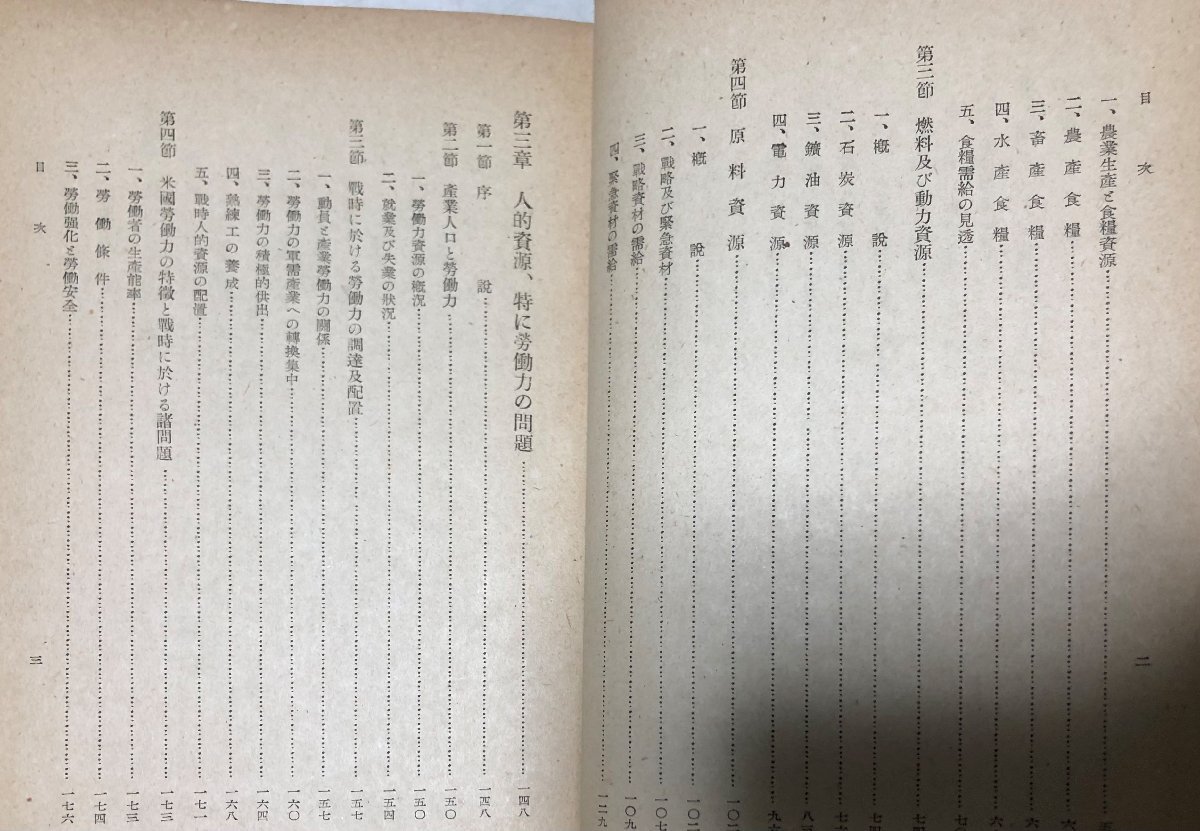 目次
一、農業生産と食糧資源
二、農産食糧
三、畜産食糧
四、水産食糧
五、食糧需給の見透
第三節 燃料及び動力資源
一、概說
二、石炭資源
三、鑛油資源
四、電力資源
第四節 原料資源
一、概說
二、戰略及び緊急資材 一〇七
三、戰略資材の需給 一〇九
四、緊急資材の需給 一二九
二
第三章 人的資源、特に勞働力の問題 一四八
第一節 序說 一四八
第二節 產業人口と勞働力 一五〇
一、勞働力資源の概況 一五〇
二、就業及び失業の狀況 一五四
第三節 戰時に於ける勞働力の調達及配置 一五七
一、動員と產業勞働力の關係 一五七
二、勞働力の軍需產業への轉換集中 一六〇
三、勞働力の積極的供出 一六四
四、熟練工の養成 一六八
五、戰時人的資源の配置 一七一
第四節 米國勞働力の特徵と戰時に於ける諸問題 一七三
一、勞働者の生產能率 一七三
二、勞働條件 一七四
三、勞働强化と勞働安全 一七六
目次
三